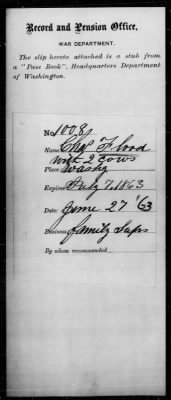 Record and Pension Office,
WAR DEPARTMENT.
The slip hereto attached is a stub from
a "Pass Book", Headquarters Department
of Washington.
No. 1008
Name, Chas Flood
wit 2 cows
Place, Washn
Expires, July 7, 1863
Date, June 27 '63
Business, family Sups
By whom recommended,